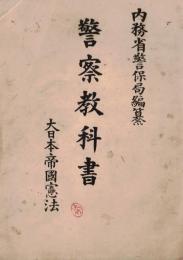 内務省警保局編纂
警察教科書
大日本帝國憲法